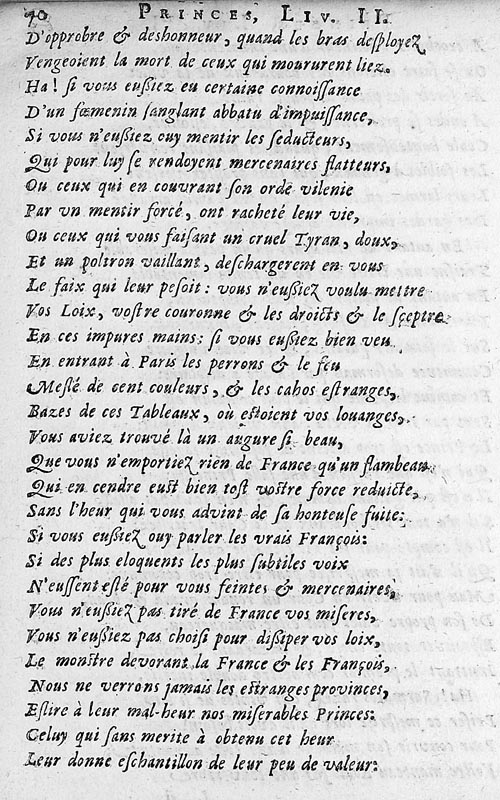 70 PRINCES, LIV. II.
D'opprobre & deshonneur, quand les bras desployez
Vengeoient la mort de ceux qui moururent liez.
Ha! si vous eussiez eu certaine connoissance
D'un fœmenin sanglant abbatu d'impuissance,
Si vous n'eussiez ouy mentir les seducteurs,
Qui pour luy se rendoyent mercenaires flatteurs,
Ou ceux qui en couvrant son orde vilenie
Par vn mentir forcé, ont racheté leur vie,
Ou ceux qui vous faisant un cruel Tyran, doux,
Et un poltron vaillant, deschargerent en vous
Le faix qui leur pesoit: vous n'eussiez voulu mettre
Vos Loix, vostre couronne & les droicts & le sçeptre
En ces impures mains: si vous eussiez bien veu
En entrant à Paris les perrons & le feu
Meslé de cent couleurs, & les cahos estranges,
Bazes de ces Tableaux, où estoient vos louanges,
Vous aviez trouvé là un augure si beau,
Que vous n'emportiez rien de France qu'un flambeau
Qui en cendre eust bien tost vostre force reduicte,
Sans l'heur qui vous advint de sa honteuse fuite:
Si vous eussiez ouy parler les vrais François:
Si des plus eloquents les plus subtiles voix
N'eussent esté pour vous feintes & mercenaires,
Vous n'eussiez pas tiré de France vos miseres,
Vous n'eussiez pas choisi pour dissiper vos loix,
Le monstre devorant la France & les François,
Nous ne verrons jamais les estranges provinces,
Eslire à leur mal-heur nos miserables Princes:
Celuy qui sans merite à obtenu cet heur
Leur donne eschantillon de leur peu de valeur: